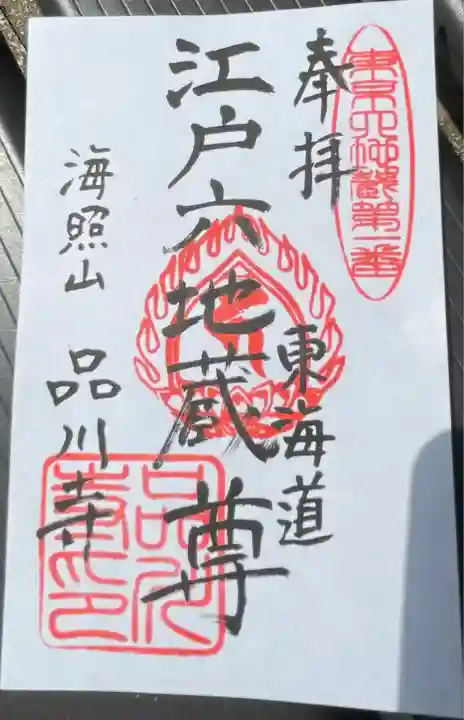 東京六地蔵第一番
奉拝
東海道
江戸六地蔵尊
海照山
品川寺